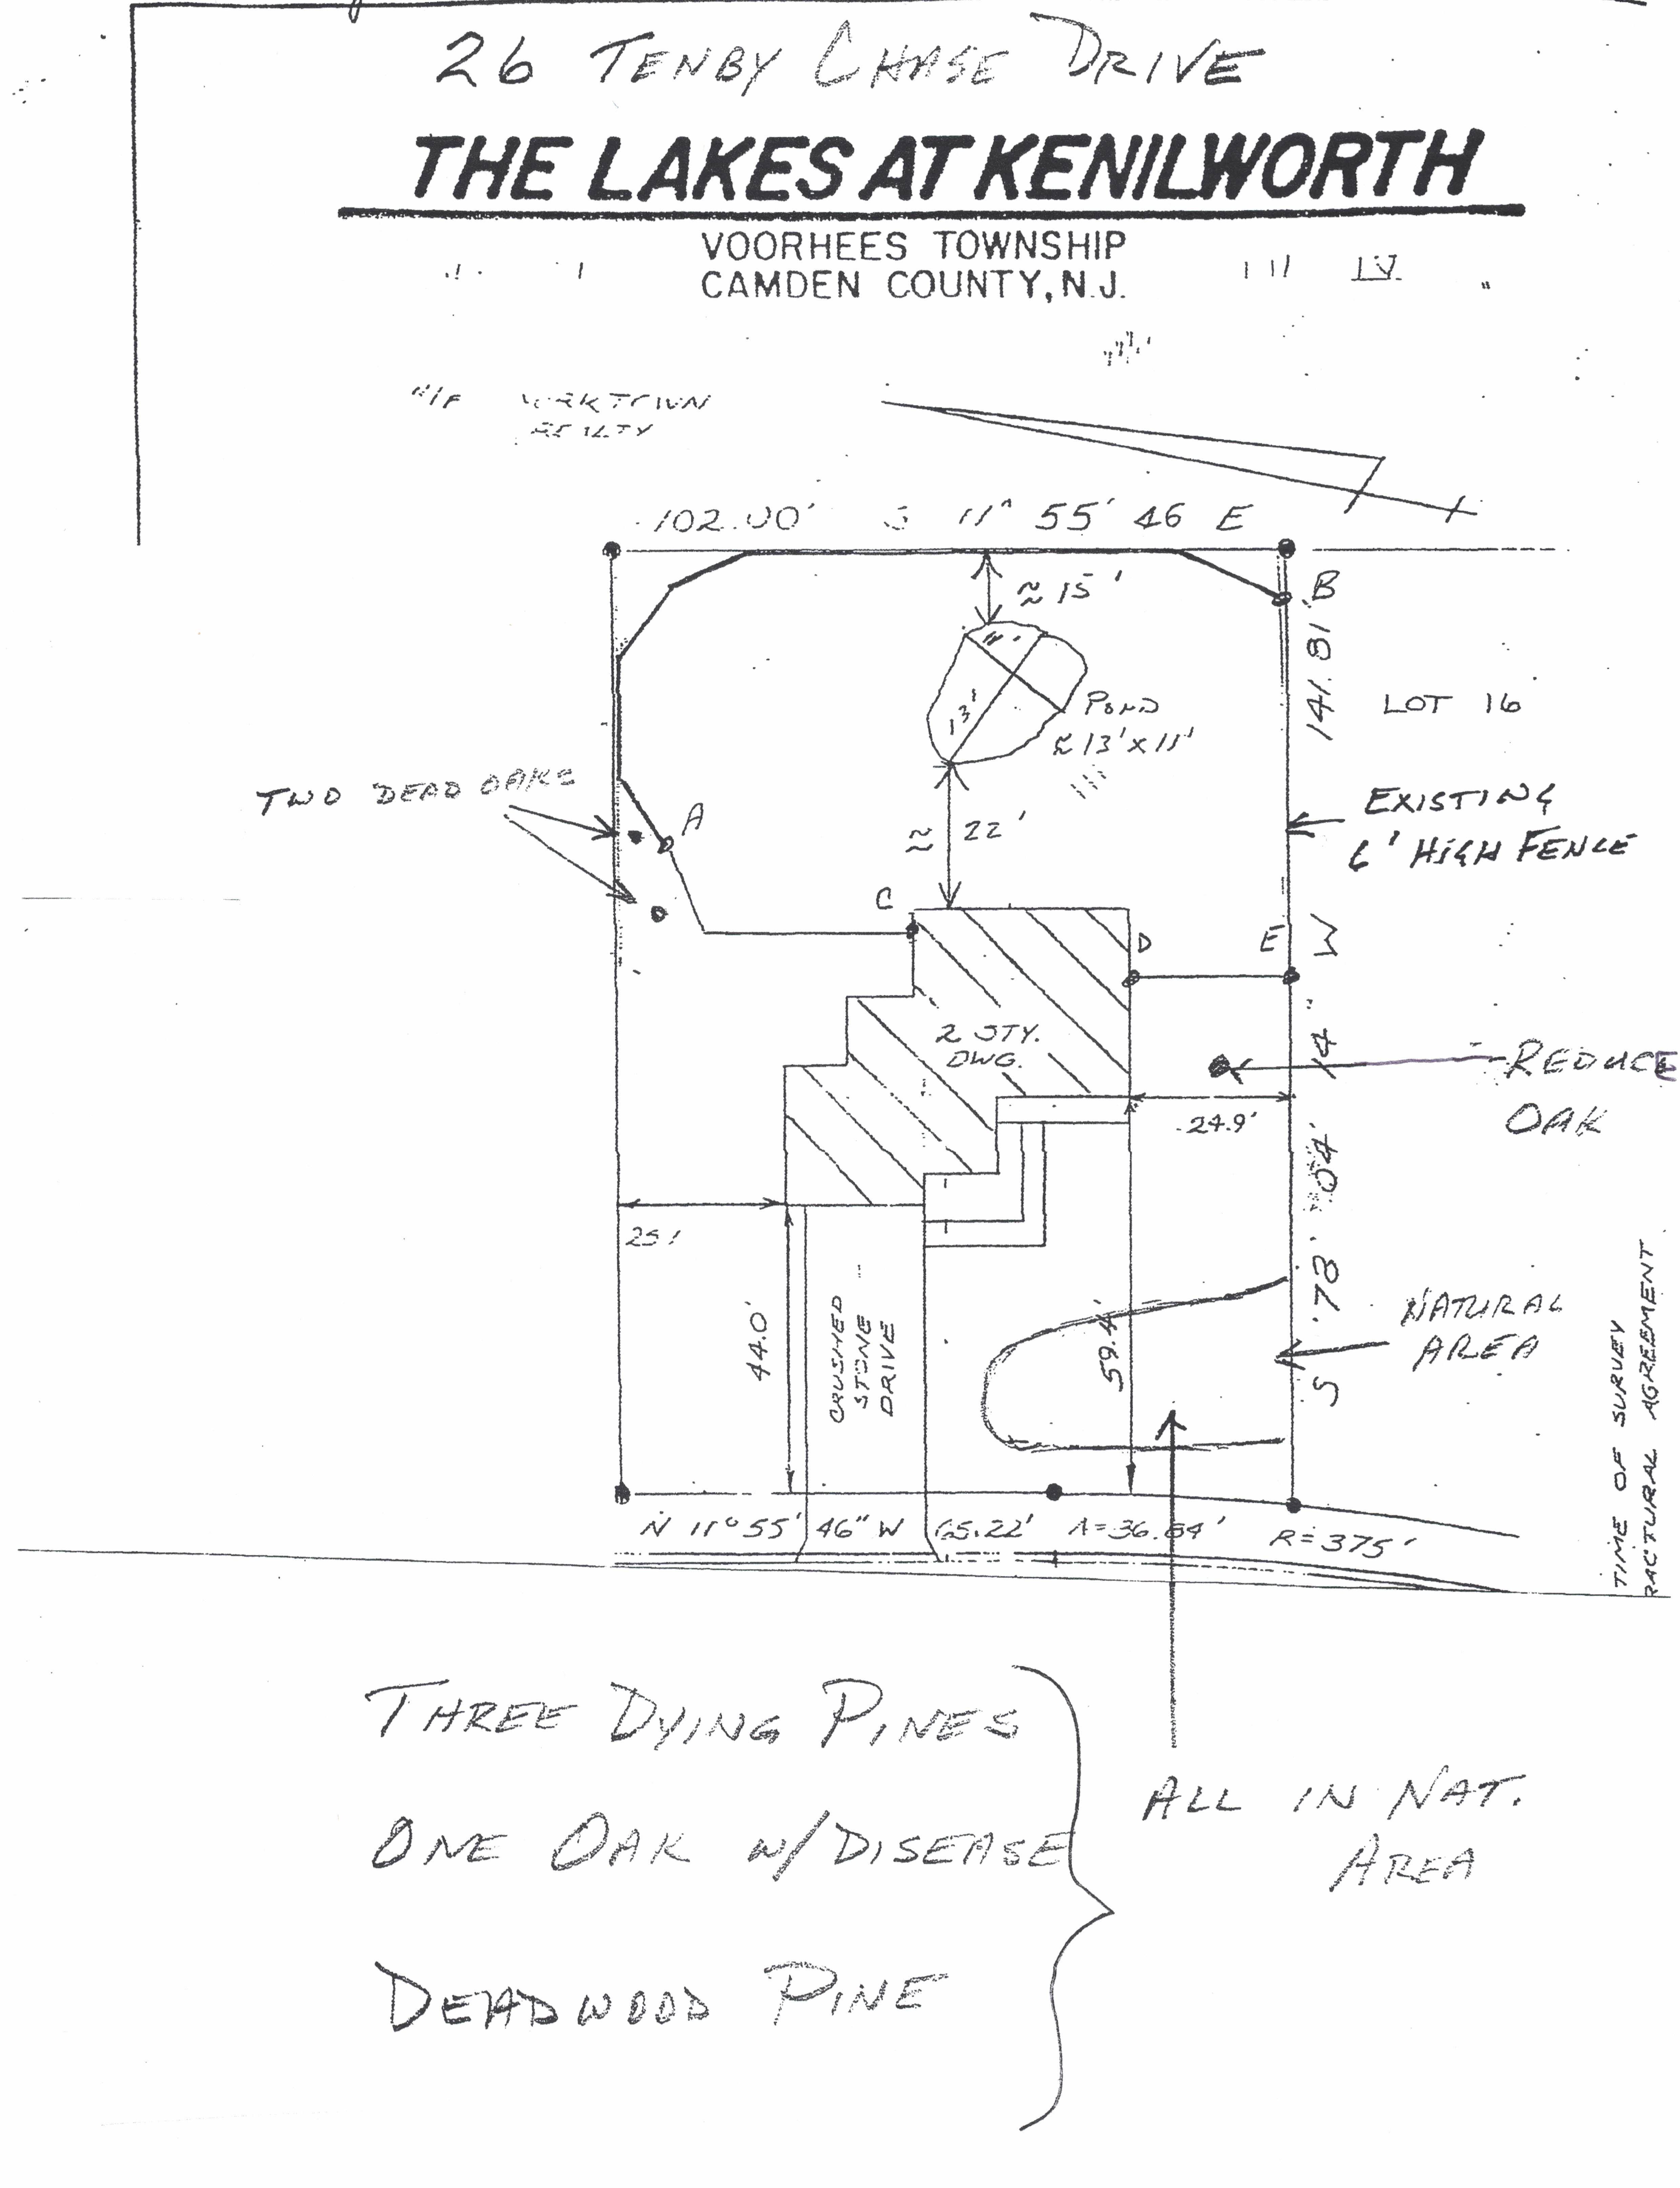 26 TENBY CHASE DRIVE
THE LAKES AT KENILWORTH
VOORHEES TOWNSHIP
CAMDEN COUNTY, N.J.
N/F YORKTOWN
REALTY
102.00' S 11° 55' 46 E
≈ 15'
B
11'
13'
POND
≈ 13' X 11'
141.81'
LOT 16
TWO DEAD OAKS
A
≈ 22'
EXISTING
6' HIGH FENCE
C
D
E
2 STY.
DWG.
REDUCE
OAK
24.9'
S 78° 04' 14" W
25'
44.0'
CRUSHED
STONE
DRIVE
59.4'
NATURAL
AREA
TIME OF SURVEY
RACTURAL AGREEMENT
N 11° 55' 46" W 65.22' R=375'
THREE DYING PINES
ONE OAK W/DISEASE
DEADWOOD PINE
ALL IN NAT.
AREA